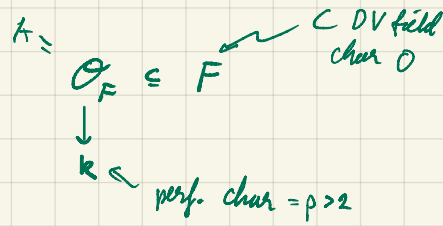 A =
𝒪_F ⊆ F
C DV field
char 0
↓
k
perf. char = p > 2